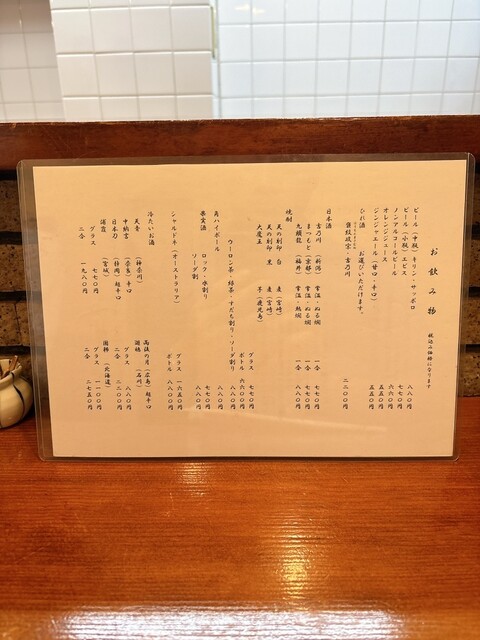 お飲み物 税込み価格になります
ビール(中瓶)キリン・サッポロ 八八〇円
ビール(小瓶)エビス 七七〇円
ノンアルコールビール 六六〇円
オレンジジュース 五五〇円
ジンジャエール(甘口・辛口) 五五〇円
ひれ酒 二二〇〇円
賀茂鶴・吉乃川 お選びいただけます。
日本酒
吉乃川(新潟) 常温・ぬる燗 一合 八八〇円
まつもと(京都) 常温・ぬる燗 一合 七七〇円
九頭龍(福井) 常温・熱燗 一合 八八〇円
焼酎
天の刻印 白 麦(宮崎)
天の刻印 黒 麦(宮崎) グラス 七七〇円
大魔王 芋(鹿児島) ボトル 六六〇〇円
ウーロン茶・緑茶・すだち割り・ソーダ割り 八八〇円
角ハイボール 八八〇円
果実酒 ロック・水割り 七七〇円
ソーダ割 八八〇円
シャルドネ(オーストラリア) グラス 一六五〇円
ボトル 八八〇〇円
冷たいお酒
天青(神奈川) 高後の月(広島)超辛口
中納言(奈良)辛口 遊穂(石川)
日本刀(静岡)超辛口 グラス 一一〇〇円
浦霞(宮城) 二合 二二〇〇円
グラス 七七〇円 国稀(北海道)
二合 一九八〇円 グラス 一一〇〇円
二合 二七五〇円